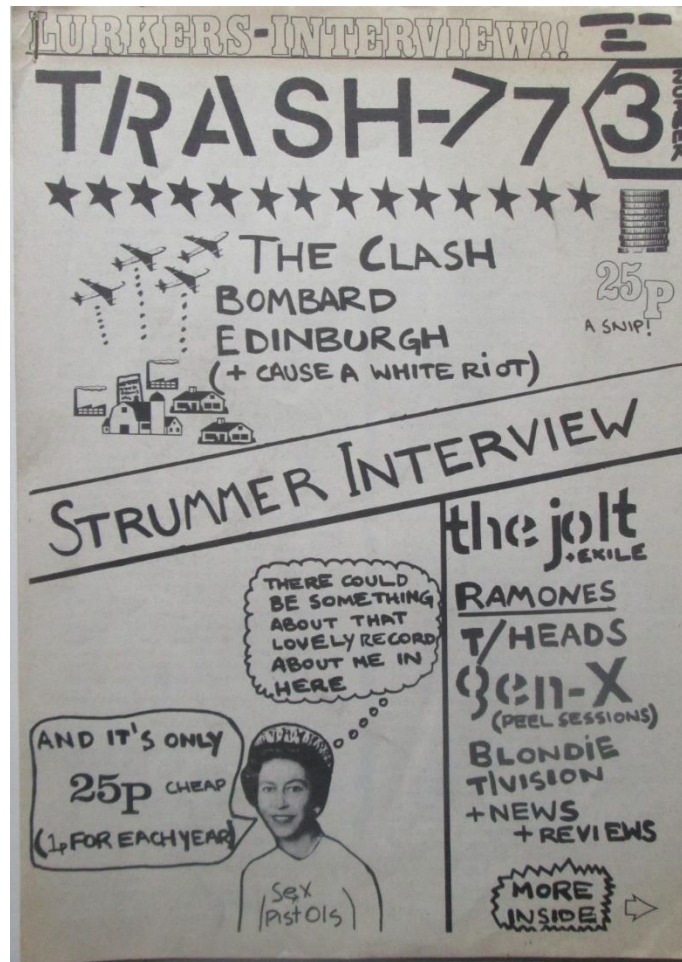 LURKERS-INTERVIEW!!
TRASH-77
NUMBER
3
THE CLASH
BOMBARD
EDINBURGH
(+ CAUSE A WHITE RiOT)
25p
A SNIP!
STRUMMER INTERVIEW
the jolt
+EXILE
RAMONES
T/HEADS
gen-X
(PEEL SESSIONS)
BLONDiE
T/VISION
+NEWS
+REVIEWS
MORE
INSIDE
THERE COULD
BE SOMETHING
ABOUT THAT
LOVELY RECORD
ABOUT ME IN
HERE
AND IT'S ONLY
25p CHEAP
(1p FOR EACH YEAR)
Sex
PistOls